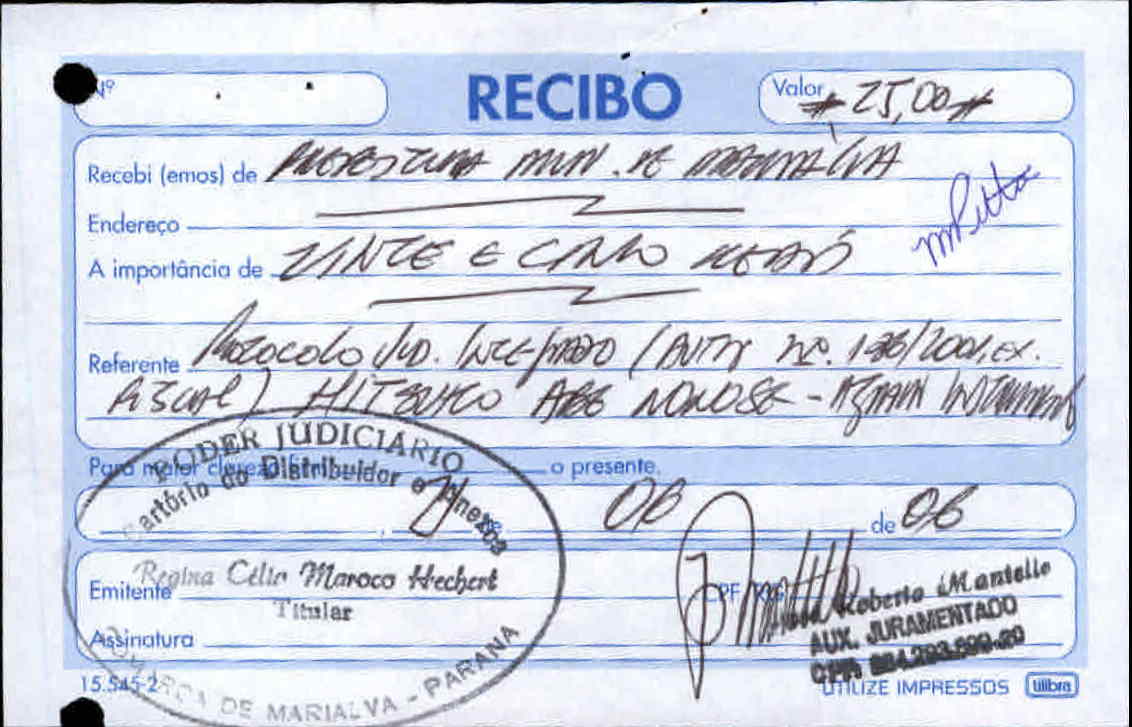 Nº
RECIBO
Valor # 25,00 #
Recebi (emos) de PREFEITURA MUN. DE MARIALVA
Endereço
mPitta
A importância de VINTE E CINCO REAIS
Referente PROTOCOLO JUD. INTEGRADO (AUTOS Nº. /2001, EX.
FISCAL) ABE - AGRAVO INSTRUMENTO
Para maior clareza o presente.
08 de 06
Emitente
Assinatura
PODER JUDICIÁRIO
Cartório do Distribuidor e Anexos
Regina Célia Maroco Hechert
Titular
COMARCA DE MARIALVA - PARANÁ
CPF
Roberto Mantello
AUX. JURAMENTADO
CPF
15.545-2
UTILIZE IMPRESSOS tilibra